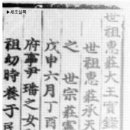 ▶세조실록
世祖惠莊大王實錄
世祖惠莊承天
之 世宗莊
戊申六月丁酉
府事尹璠之女
祖幼時養于民